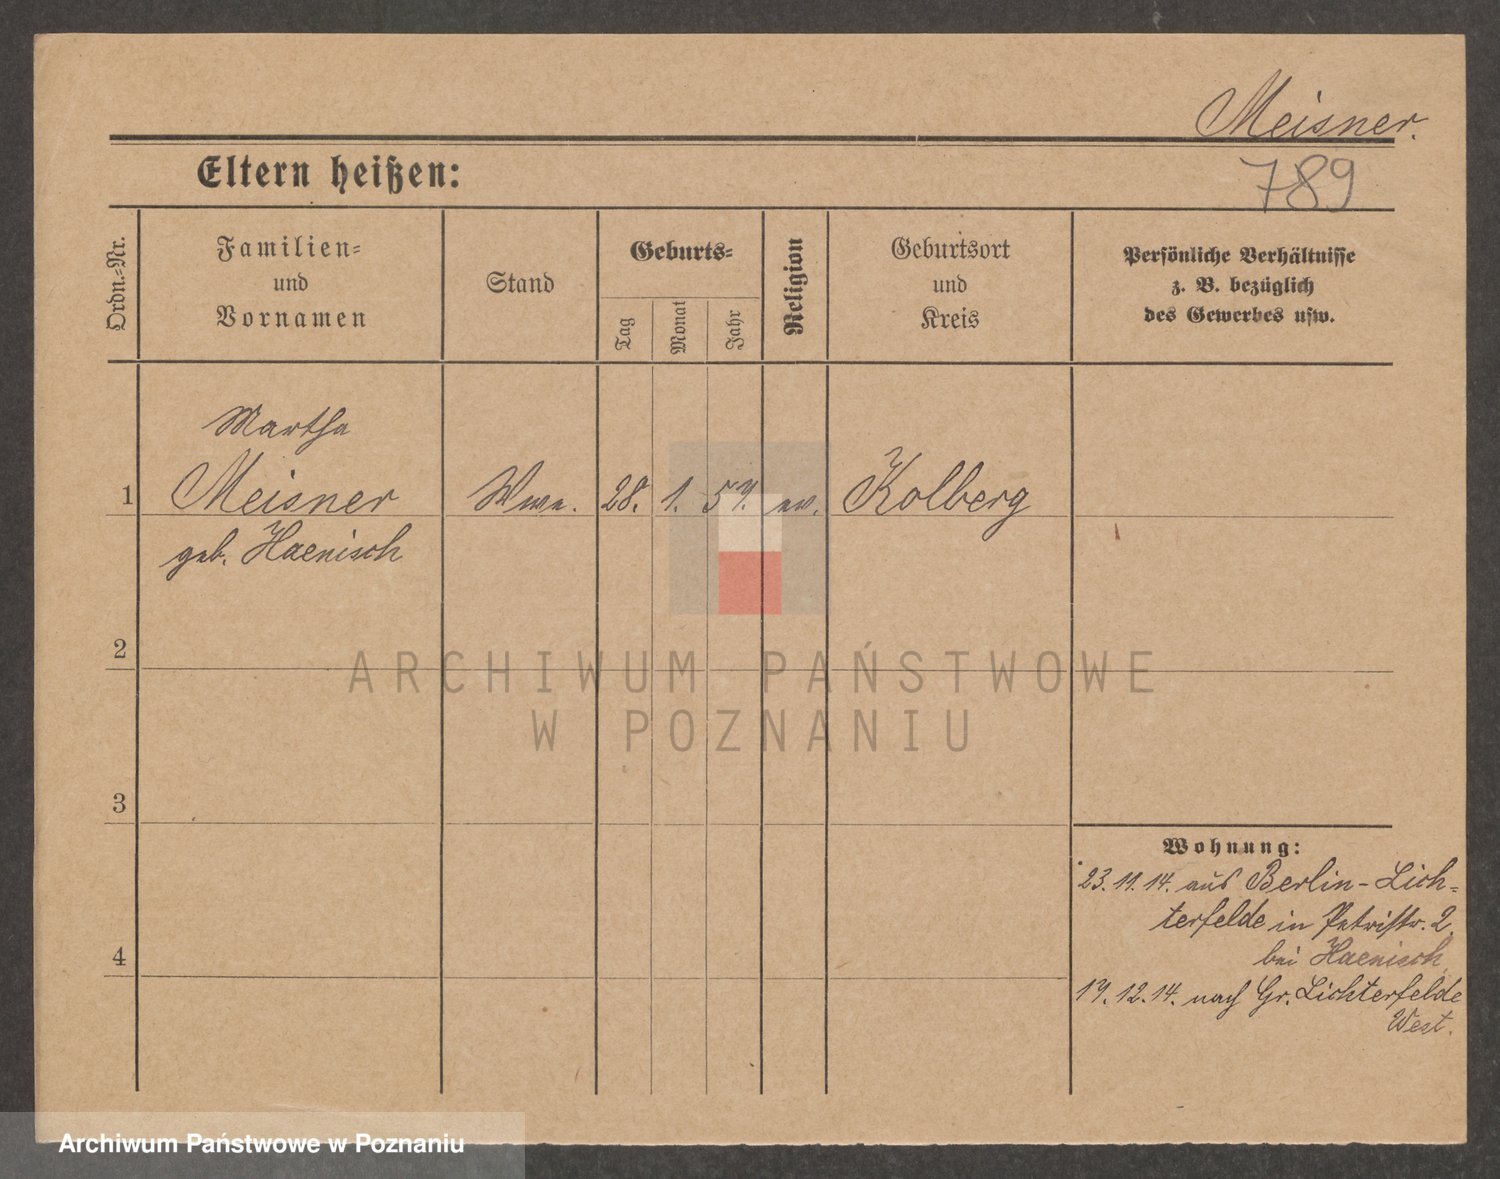 Meisner.
Eltern heißen:
789
Ordn.-Nr.
Familien-
und
Vornamen
Stand
Geburts-
Tag
Monat
Jahr
Religion
Geburtsort
und
Kreis
Persönliche Verhältnisse
z. B. bezüglich
des Gewerbes usw.
Martha
1 Meisner Wwe. 28. 1. 57. ev. Kolberg
geb. Haenisch
2
ARCHIWUM PAŃSTWOWE
W POZNANIU
3
Wohnung:
23.11.14. aus Berlin-Lich-
terfelde in Petristr. 2.
bei Haenisch
4
17.12.14. nach Gr. Lichterfelde
West.
Archiwum Państwowe w Poznaniu